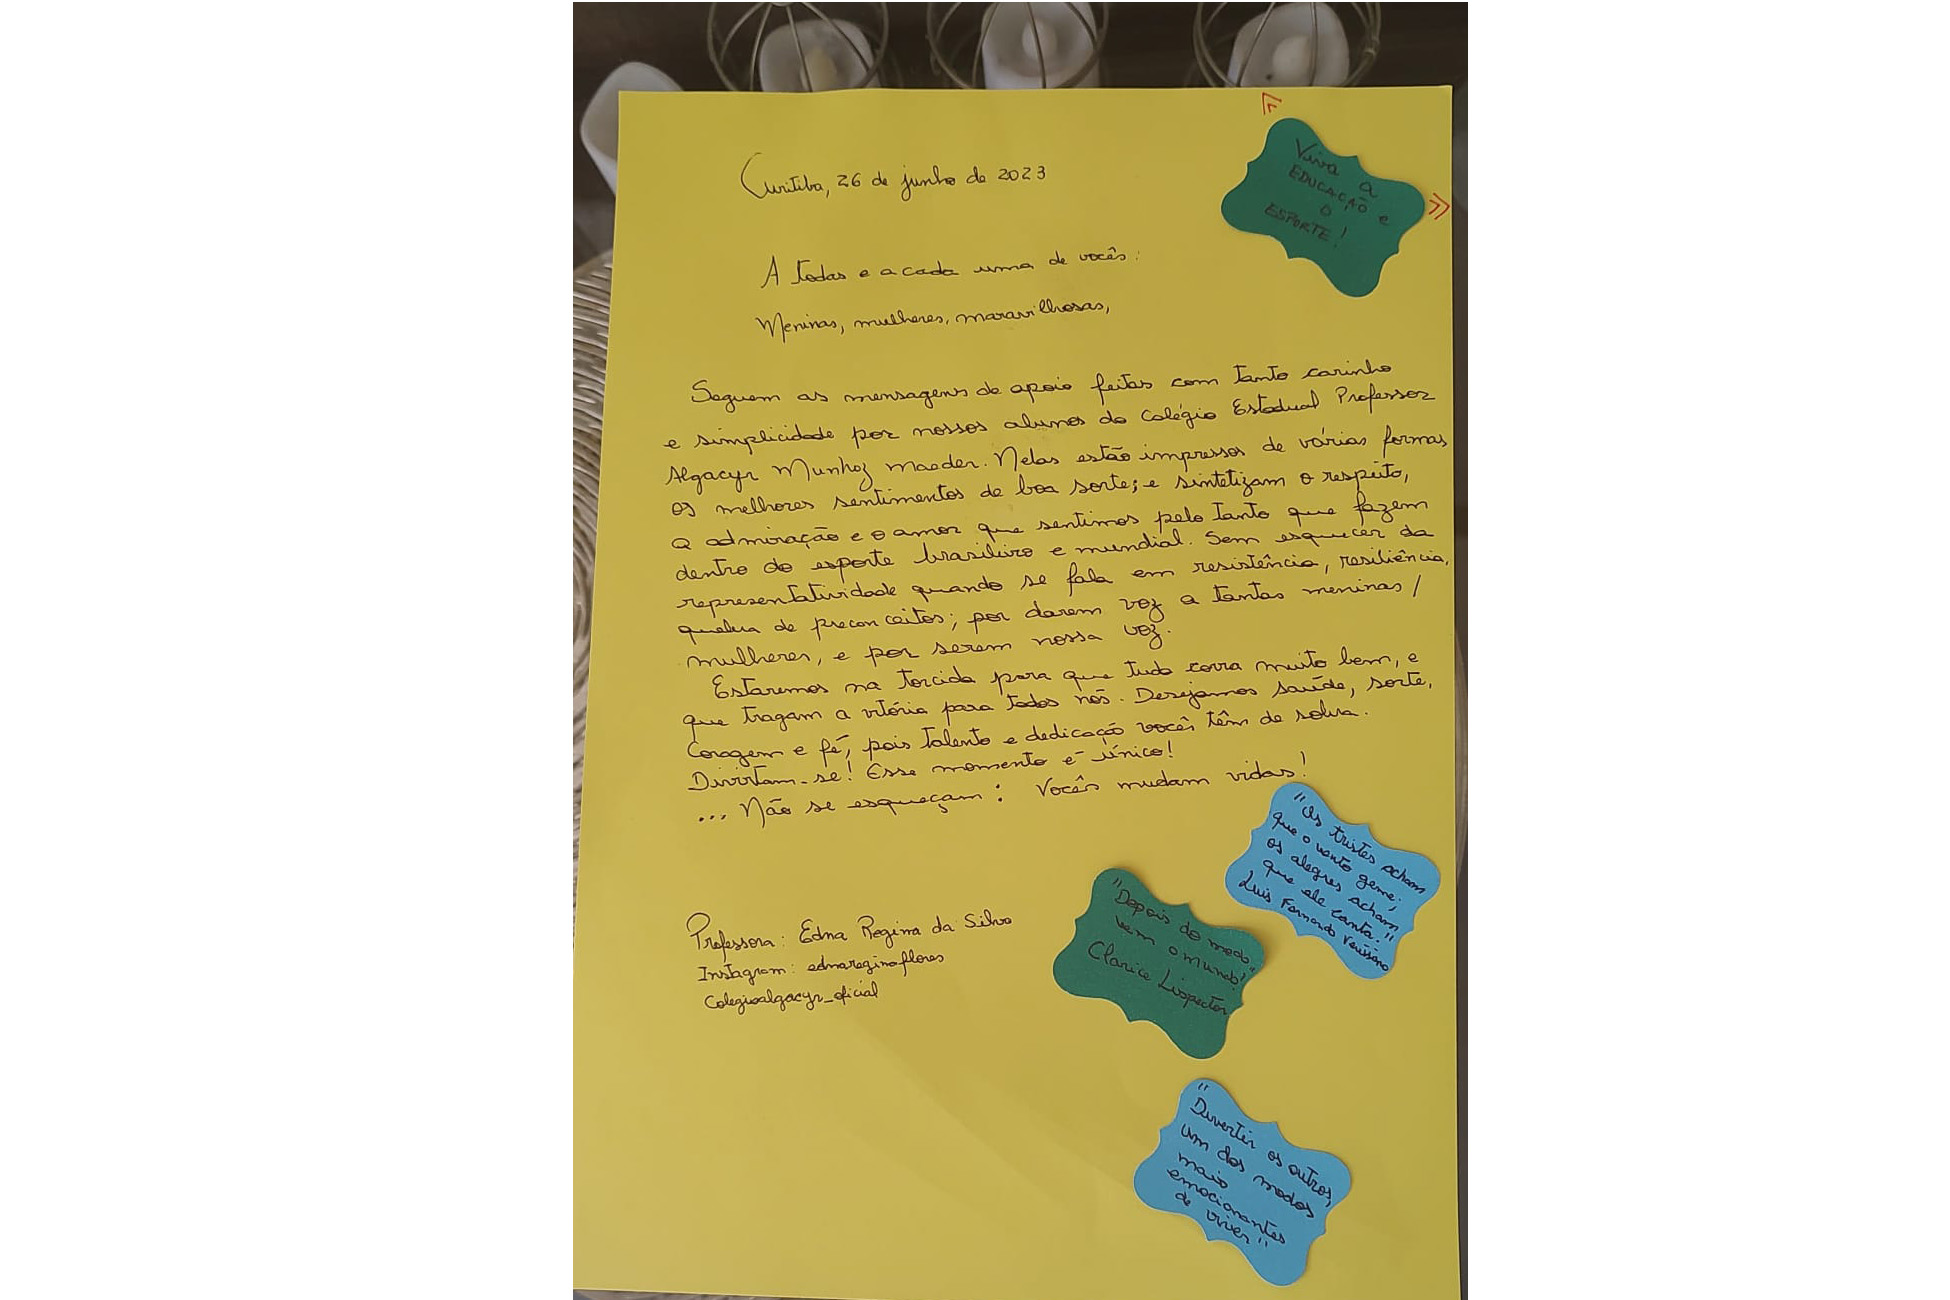 Curitiba, 26 de junho de 2023
Viva a
EDUCAÇÃO e
O
ESPORTE!
A todas e a cada uma de vocês:
Meninas, mulheres, maravilhosas,
Seguem as mensagens de apoio feitas com tanto carinho
e simplicidade por nossos alunos do Colégio Estadual Professor
Algacyr Munhoz Maeder. Nelas estão impressos de várias formas
os melhores sentimentos de boa sorte; e sintetizam o respeito,
a admiração e o amor que sentimos pelo tanto que fazem
dentro do esporte brasileiro e mundial. Sem esquecer da
representatividade quando se fala em resistência, resiliência,
quebra de preconceitos; por darem voz a tantas meninas/
mulheres, e por serem nossa voz.
Estaremos na torcida para que tudo corra muito bem, e
que tragam a vitória para todos nós. Desejamos saúde, sorte,
coragem e fé, pois talento e dedicação vocês têm de sobra.
Divirtam-se! Esse momento é único!
... Não se esqueçam: Vocês mudam vidas!
"Os tristes acham
que o vento geme;
os alegres acham
que ele canta."
Luis Fernando Veríssimo
"Depois do medo
vem o mundo!"
Clarice Lispector
Professora: Edna Regina da Silva
Instagram: ednareginaflores
Colegioalgacyr_oficial
"Divertir os outros,
um dos modos
mais
emocionantes
de viver"